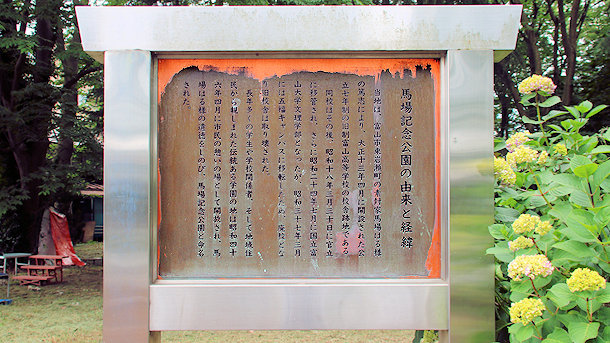 馬場記念公園の由来と経緯
当地は、富山市東岩瀬町の素封家馬場はる様
の篤志により、大正十三年四月に開設された公
立七年制の旧制富山高等学校の校舎跡地である。
同校はその後、昭和十八年三月三十日に官立
に移管され、さらに昭和二十四年七月に国立富
山大学文理学部となったが、昭和三十七年三月
には五福キャンパスに移転したため、廃校とな
り旧校舎は取り壊された。
長年多くの学生や学校関係者、そして地域住
民から親しまれた伝統ある学園の地は昭和四十
六年四月に市民の憩いの場として開放され、馬
場はる様の遺徳をしのび、馬場記念公園と命名
された。